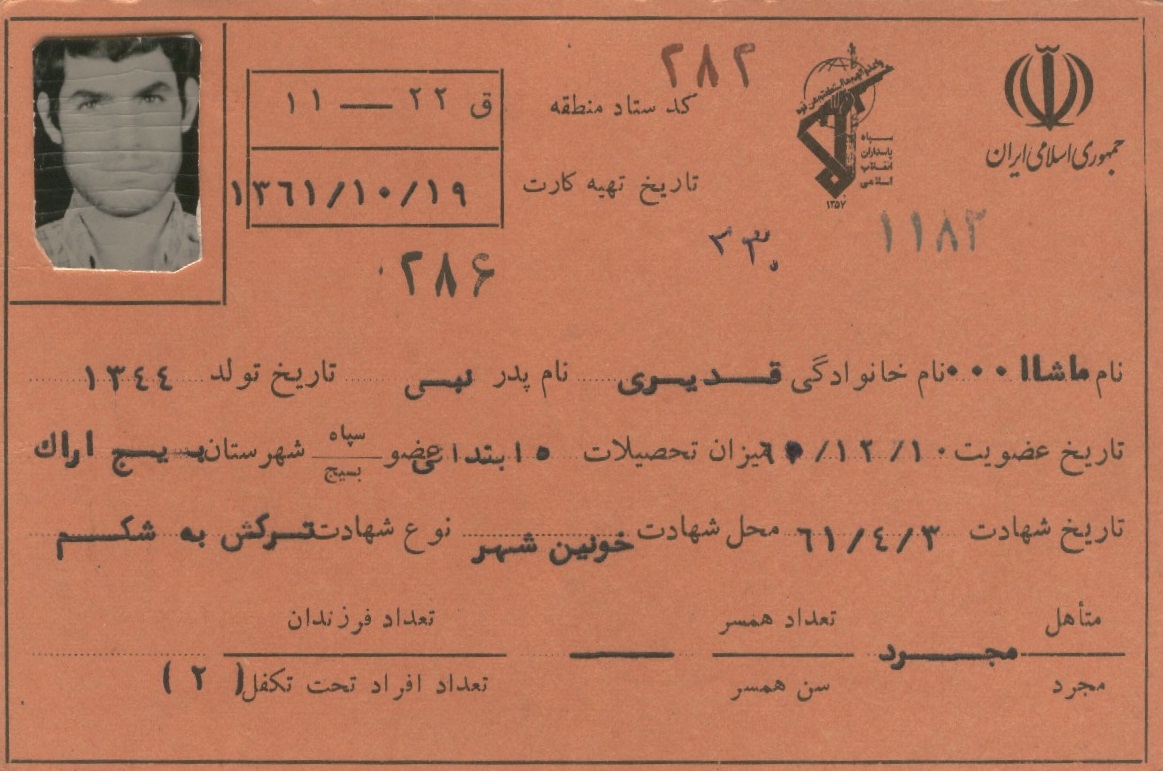 جمهوری اسلامی ایران
سپاه
پاسداران
انقلاب
اسلامی
۱۳۵۷
۲۸۲
کد ستاد منطقه ق ۲۲ — ۱۱
تاریخ تهیه کارت ۱۳۶۱/۱۰/۱۹
۱۱۸۲
۳۳۰
۲۸۶
نام ماشاا ۰۰۰ نام خانوادگی قدیری نام پدر نبی تاریخ تولد ۱۳۴۴
تاریخ عضویت ۶۰/۱۲/۱۰ میزان تحصیلات ۵ ابتدائی عضو سپاه بسیج شهرستان بسیج اراك
تاریخ شهادت ۶۱/٤/۳ محل شهادت خونین شهر نوع شهادت ترکش به شکم
متأهل تعداد همسر تعداد فرزندان
مجرد —
مجرد سن همسر تعداد افراد تحت تکفل ( ۲ )